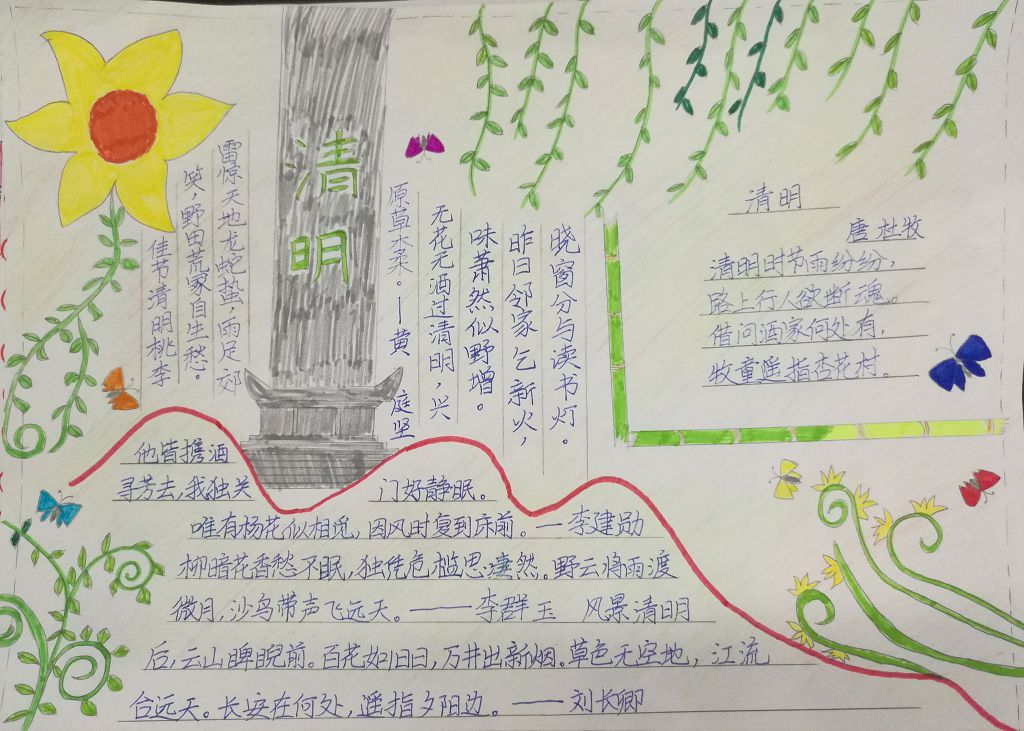 清明
佳节清明桃李
笑，野田荒冢自生愁。
雷惊天地龙蛇蛰，雨足郊
原草木柔。——黄庭坚
无花无酒过清明，兴
味萧然似野增。
昨日邻家乞新火，
晓窗分与读书灯。
清明
唐 杜牧
清明时节雨纷纷，
路上行人欲断魂。
借问酒家何处有，
牧童遥指杏花村。
他皆携酒
寻芳去，我独关 门好静眠。
唯有杨花似相觅，因风时复到床前。—李建勋
柳暗花香愁不眠，独凭危槛思凄然。野云将雨渡
微月，沙鸟带声飞远天。——李群玉 风景清明
后，云山睥睨前。百花如旧日，万井出新烟。草色无空地，江流
合远天。长安在何处，遥指夕阳边。——刘长卿